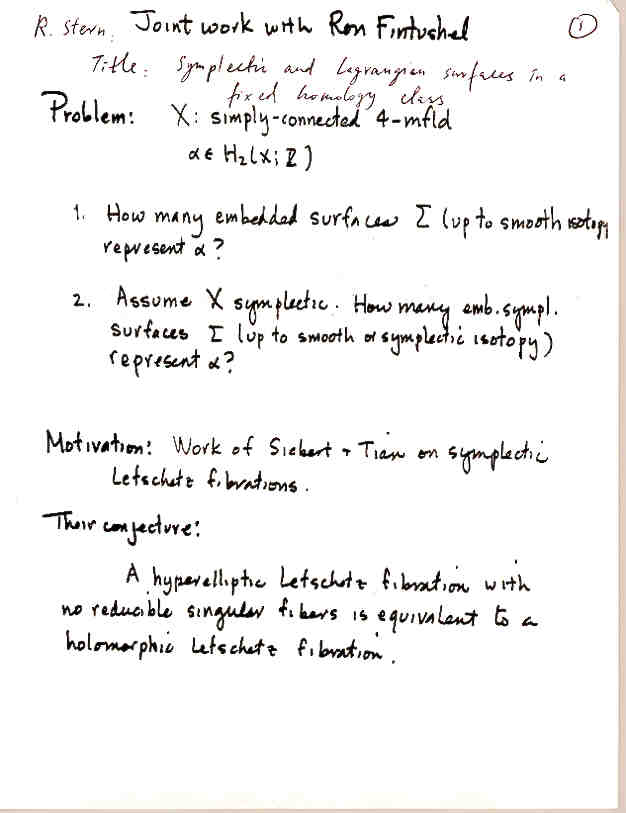 R. Stern. Joint work with Ron Fintushel
1
Title: Symplectic and Lagrangian surfaces in a
fixed homology class
Problem: X: simply-connected 4-mfld
α ∈ H₂(X; ℤ)
1. How many embedded surfaces Σ (up to smooth isotopy
represent α?
2. Assume X symplectic. How many emb. sympl.
surfaces Σ (up to smooth or symplectic isotopy)
represent α?
Motivation: Work of Siebert + Tian on symplectic
Lefschetz fibrations.
Their conjecture:
A hyperelliptic Lefschetz fibration with
no reducible singular fibers is equivalent to a
holomorphic Lefschetz fibration.